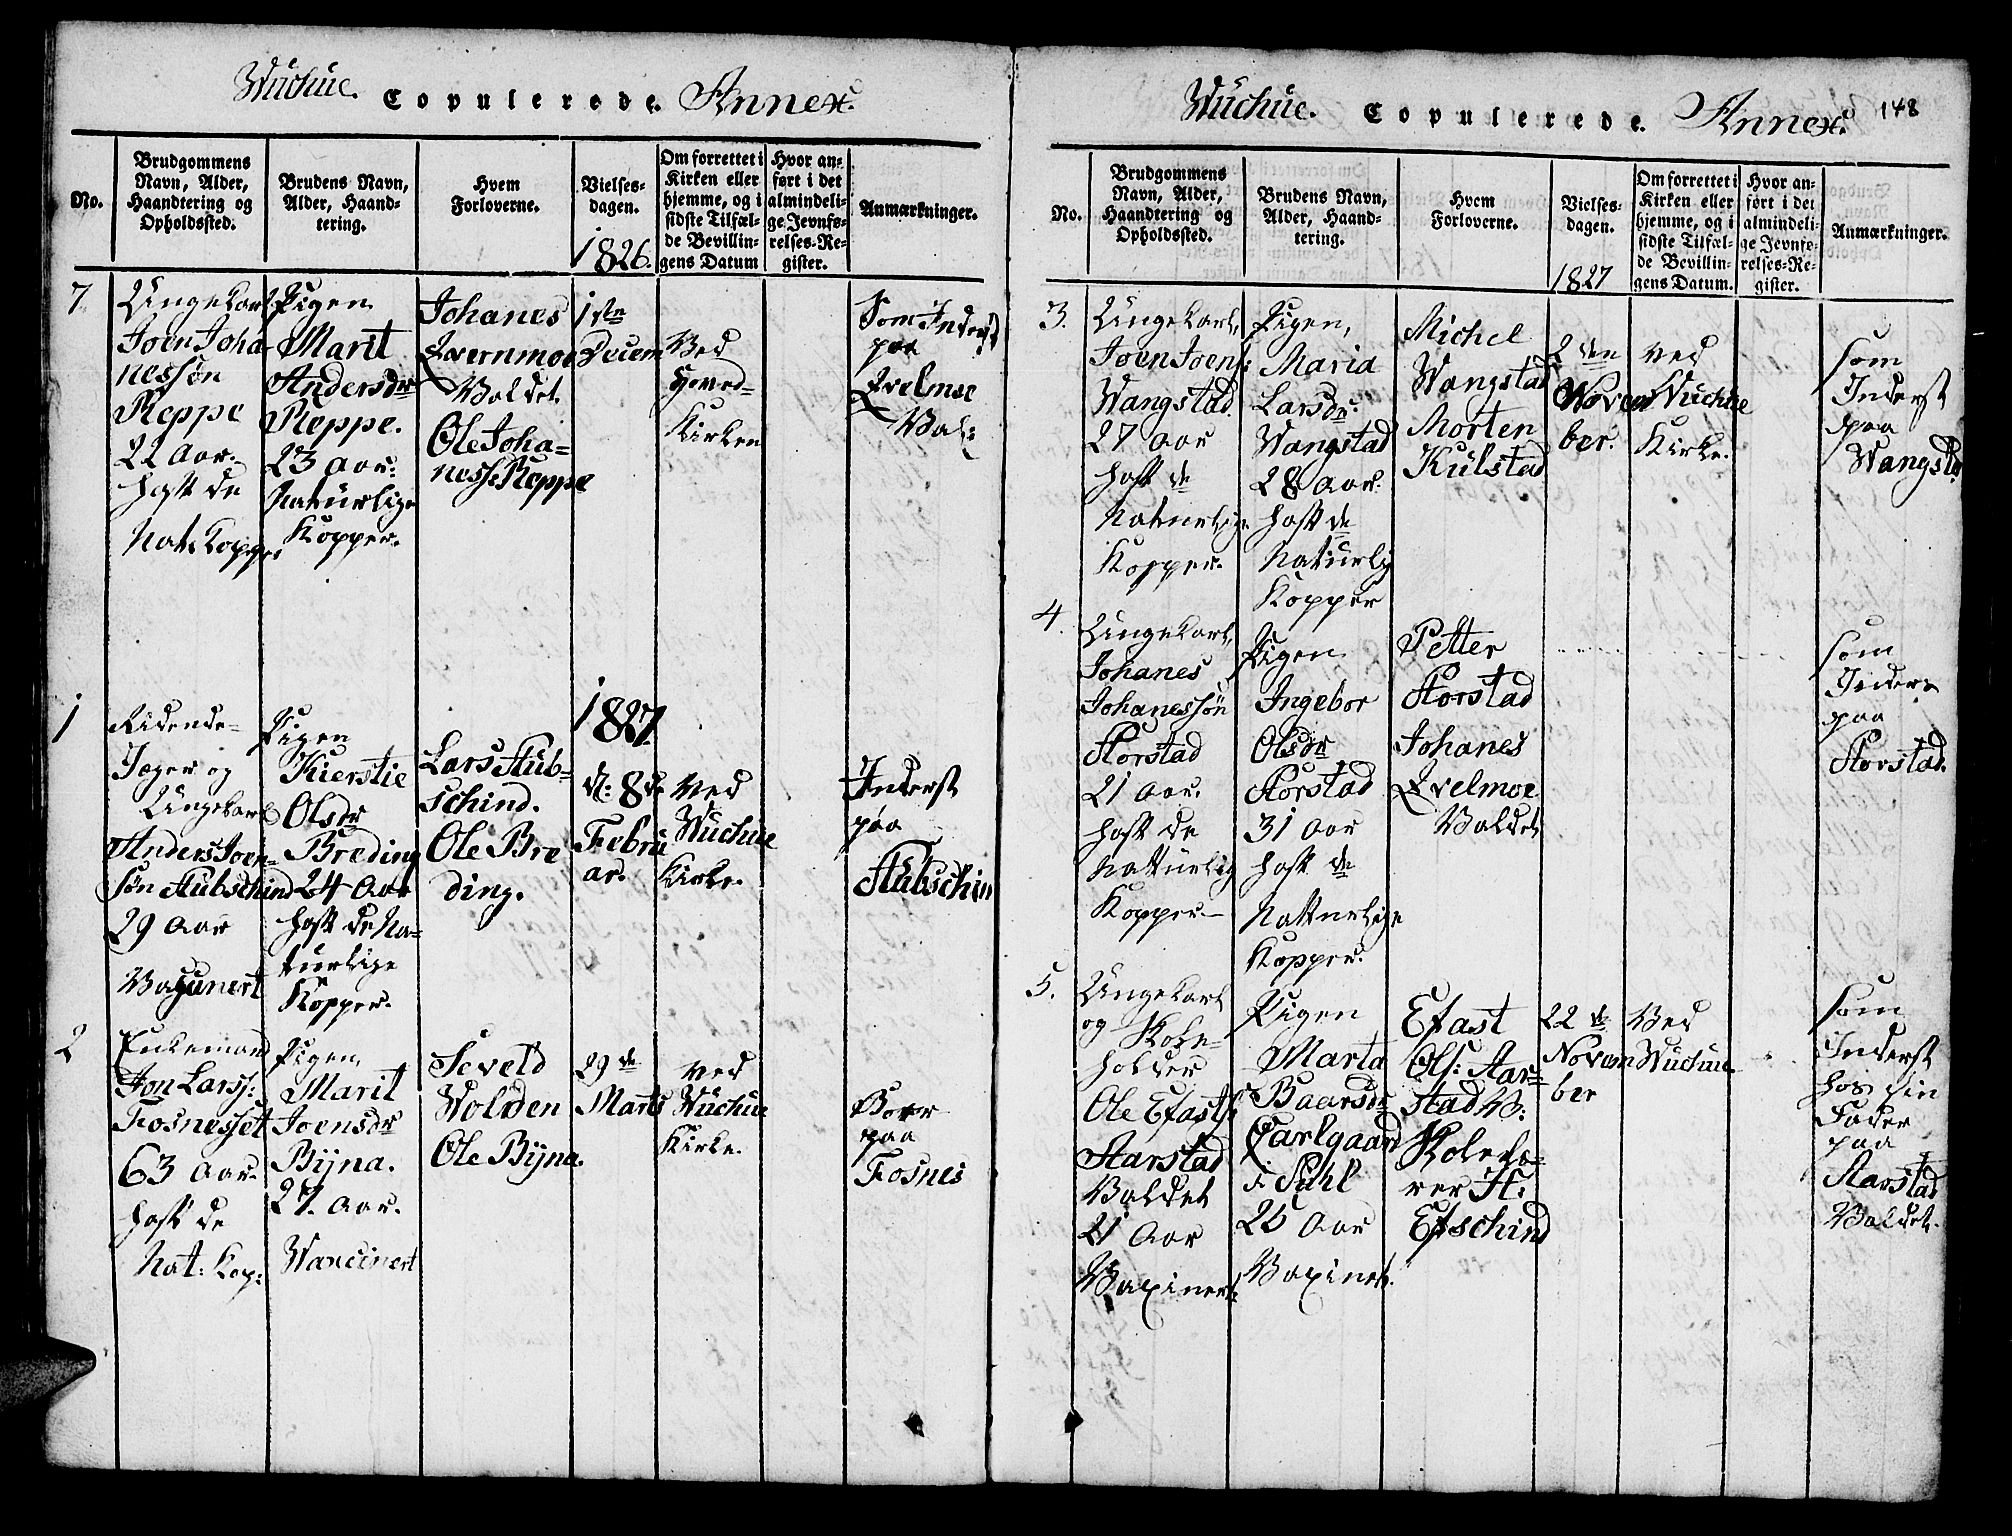 Wuchue. Copulerede. Annex.
No.
Brudgommens
Navn, Alder,
Haandtering og
Opholdssted.
Brudens Navn,
Alder, Haand-
tering.
Hvem
Forloverne.
Vielses-
dagen.
1826.
Om forrettet i
Kirken eller
hjemme, og i
sidste Tilfæl-
de Bevillin-
gens Datum
Hvor an-
ført i det
almindeli-
ge Jevnfø-
relses-Re-
gister.
Anmærkninger.
7.
Ungekarl
Joen Joha-
nessøn
Reppe
22 Aar.
haft de
Nat: Kopper
Pigen
Marit
Andersdr
Reppe.
23 Aar:
Naturlige
Kopper.
Johanes
Qvernmoe
Valdet.
Ole Joha=
ness: Reppe
1ste
Decem
Ved
Hoved-
Kirken
Som Inderst
paa
Qvelmoe
Val:
1
Ridende=
Jæger og
Ungekarl
Anders Joen-
søn Stubschind
29 Aar
Vaxunert
Pigen
Kierstie
Olsdr
Breding
24 Aar
haft de Na=
turlige
Kopper.
Lars Stub=
schind.
Ole Bre
ding.
1827
d: 8de
Febru
ar.
ved
Wuchue
Kirke.
Inderst
paa
Stubschin
2
Enkemand
Jon Larss:
Fosnesset
63 Aar.
haft de
Nat: Kop:
Pigen
Marit
Joensdr
Bÿna.
27. Aar.
Waxcinert
Seveld
Wolden
Ole Bÿna.
29de
Marts
ved
Wuchue
Kirke.
Boer
paa
Fosnes
Wuchue. Copulerede. Annex. 148
No.
Brudgommens
Navn, Alder,
Haandtering og
Opholdssted.
Brudens Navn,
Alder, Haand-
tering.
Hvem
Forloverne.
Vielses-
dagen.
1827
Om forrettet i
Kirken eller
hjemme, og i
sidste Tilfæl-
de Bevillin-
gens Datum.
Hvor an-
ført i det
almindeli-
ge Jevnfø-
relses-Re-
gister.
Anmærkninger.
3.
Ungekarl,
Joen Joens:
Wangstad
27 Aar
haft de
Naturlige
Kopper.
Pigen,
Maria
Larsdr.
Wangstad
28 Aar.
haft de
Naturlig
Kopper
Michel
Wangstad
Morten
Kulstad
2den
Novem
ber.
ved
Wuchue
Kirke.
som
Inderst
paa
Wangsta
4.
Ungekarl,
Johanes
Johanessøn
Storstad
21 Aar.
haft de
Natturlig
Kopper
Pigen
Ingebor
Olsdr
Storstad
31 Aar
haft de
Natturlige
Kopper.
Petter
Storstad
Johanes
Qvelmoe
Valdet
som
Inders
paa
Storstad.
5.
Ungekarl
og Kole=
holder
Ole Efasts:
Aarstad
Valdet
21 Aar
Vaxinert.
Pigen
Marta
Baarsdr
Carlgaard
i Stuhl
26 Aar
Vaxinet.
Efast
Ols: Aar=
stad V:
Kolelæ=
rer H:
Efschind
22de
Novem
ber
Ved
Wuchue
som
Inderst
hos sin
Fader
paa
Aarstad
Valdet.